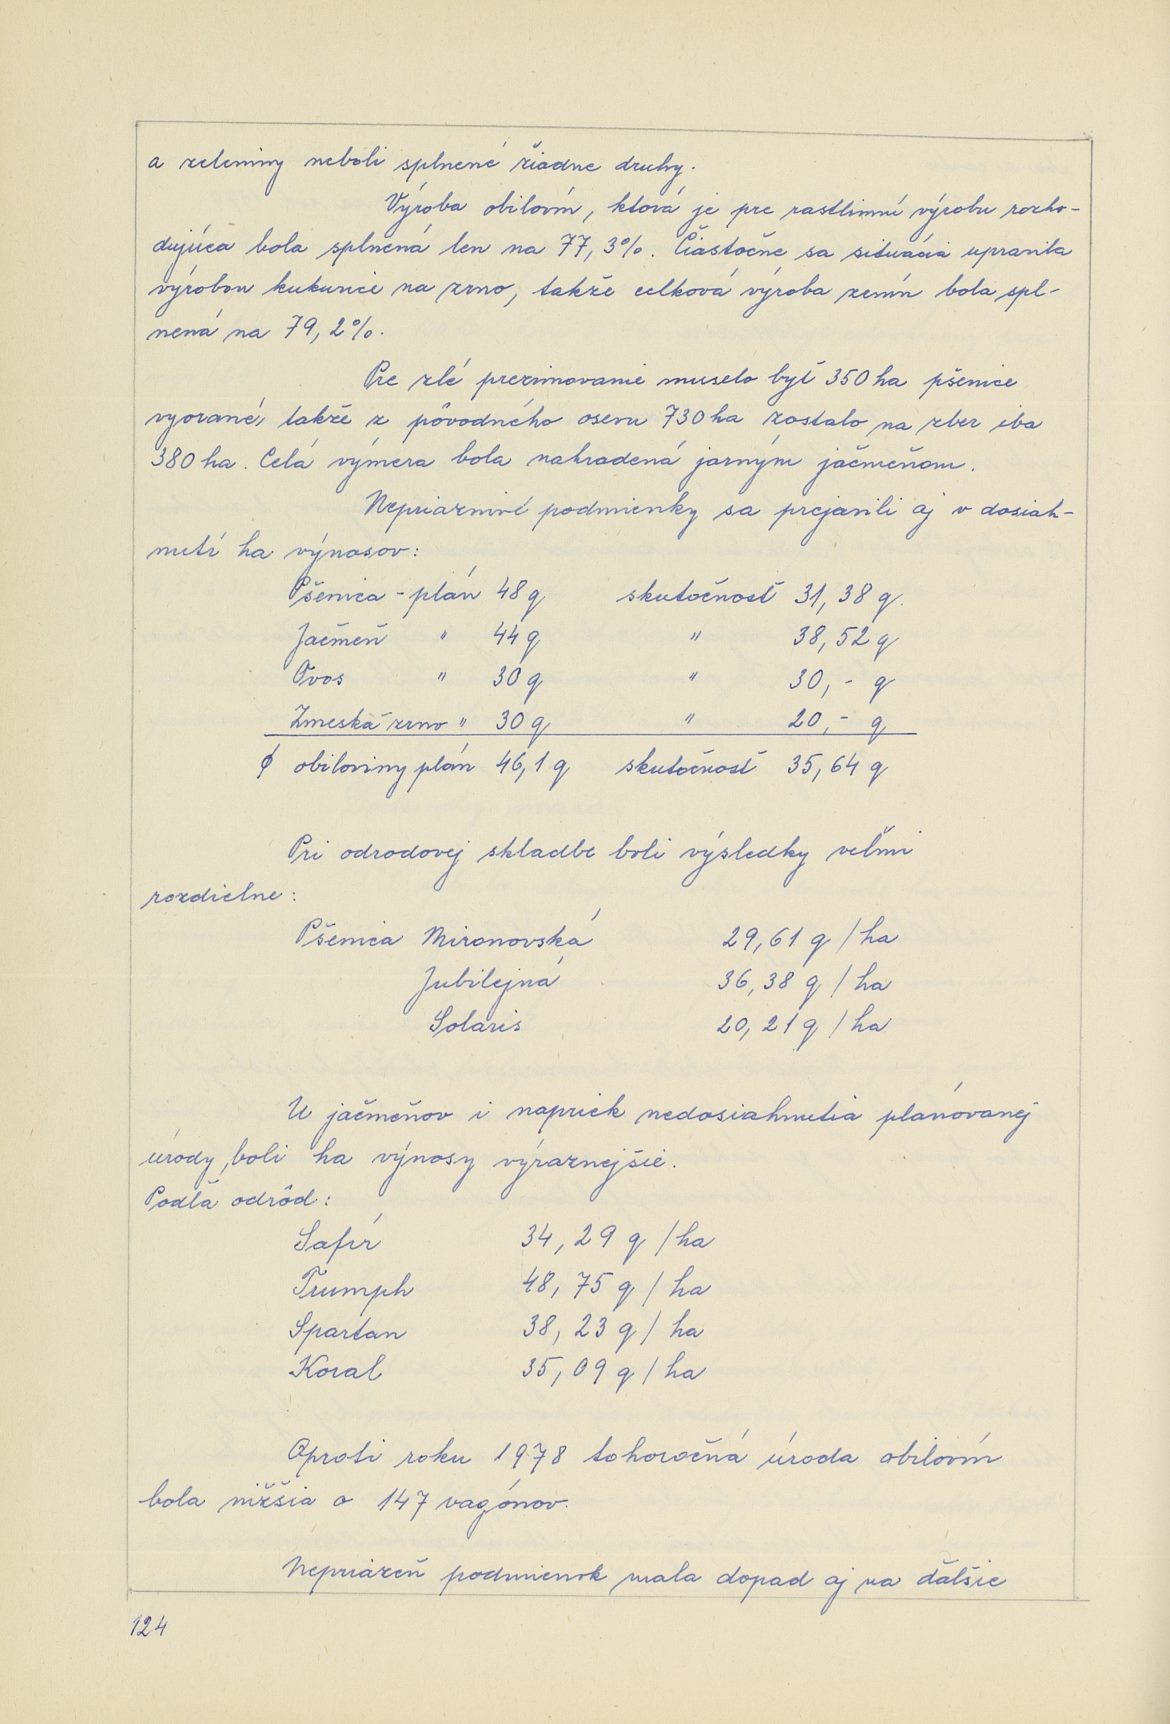 a zeleniny neboli splnené žiadne druhy.
Výroba obilovín, ktorá je pre rastlinnú výrobu rozho-
dujúca bola splnená len na 77,3%. Čiastočne sa situácia upravila
výrobou kukurice na zrno, takže celková výroba zrnín bola spl-
nená na 79,2%.
Pre zlé prezimovanie muselo byť 350 ha pšenice
vyorané, takže z pôvodného osevu 730 ha zostalo na zber iba
380 ha. Celá výmera bola nahradená jarným jačmeňom.
Nepriaznivé podmienky sa prejavili aj v dosiah-
nutí ha výnosov:
Pšenica - plán 48 q skutočnosť 31,38 q.
Jačmeň " 44 q " 38,52 q
Ovos " 30 q " 30,- q
Zmeská zrno " 30 q " 20,- q
ø obiloviny plán 46,1 q skutočnosť 35,64 q
Pri odrodovej skladbe boli výsledky veľmi
rozdielne:
Pšenica Mironovská 29,61 q/ha
Jubilejná 36,38 q/ha
Solaris 20,21 q/ha
U jačmeňov i napriek nedosiahnutia plánovanej
úrody, boli ha výnosy výraznejšie.
Podľa odrôd:
Safír 34,29 q/ha
Trumph 48,75 q/ha
Spartan 38,23 q/ha
Koral 35,09 q/ha
Oproti roku 1978 tohoročná úroda obilovín
bola nižšia o 147 vagónov.
Nepriazeň podmienok mala dopad aj na ďalšie
124